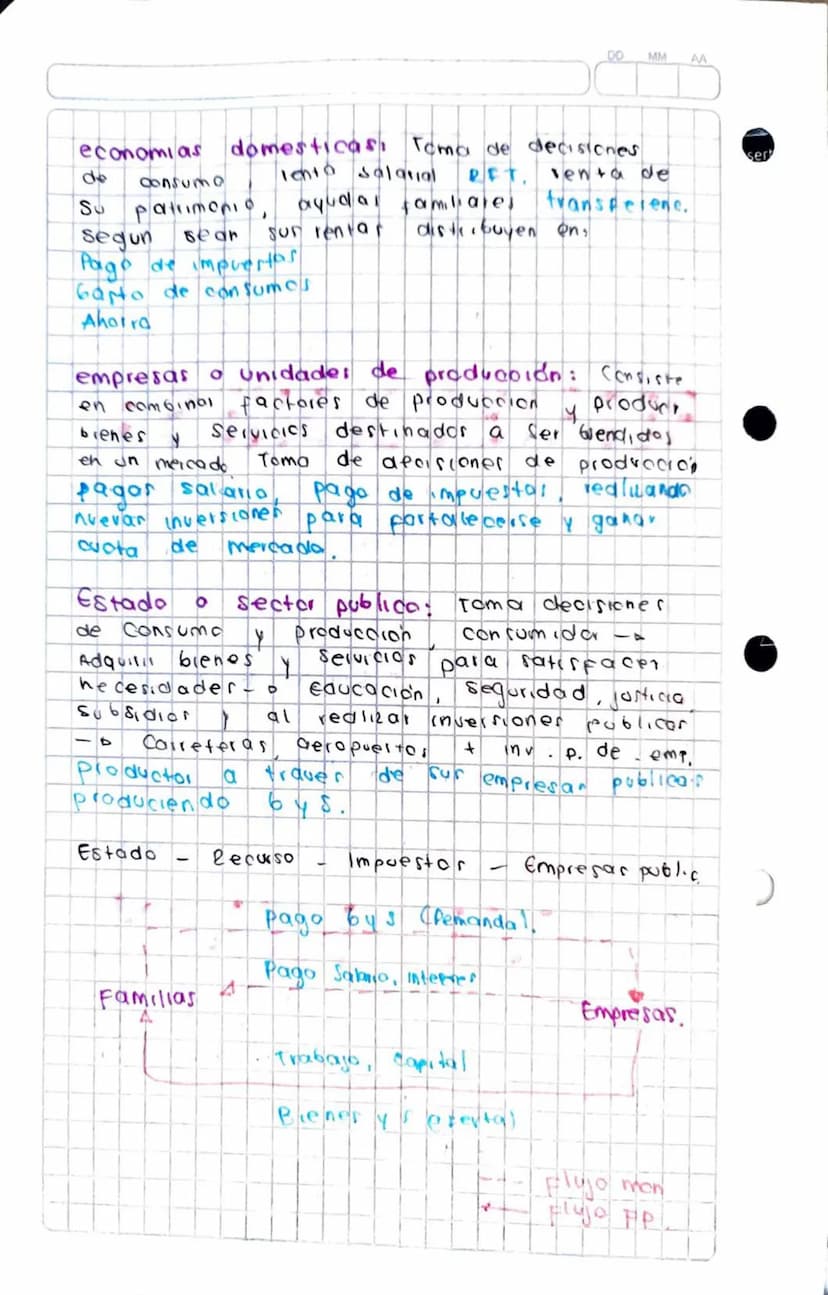 DD MM AA
economias domesticas: Toma de decisiones
de consumo, renta salarial RFT. renta de
su patrimonio, ayudas familiares transferenc.
segun sean sus rentas distribuyen en:
Pago de impuestos
Gasto de consumos
Ahorro
empresas o unidades de producción: Consiste
en combinar factores de produccion y producir
bienes y servicios destinados a ser vendidos
en un mercado Toma de decisiones de producción
pagos salario, pago de impuestos, realizando
nuevas inversiones para fortalecerse y ganar
cuota de mercado.
Estado o sector publico: Toma decisiones
de consumo y producción, consumidor →
Adquirir bienes y servicios para satisfacer
necesidades → educación, seguridad, justicia
subsidios y al realizar inversiones publicas
→ Carreteras, aeropuertos + inv. p. de. emp.
productor a traves de sus empresas publicas
produciendo b y s.
Estado - Recurso - Impuestos - Empresas public
Pago b y s (Demanda).
Pago Salario, interes
Familias
Empresas.
Trabajo, capital
Bienes y s
Flujo mon
Flujo FP.
sert